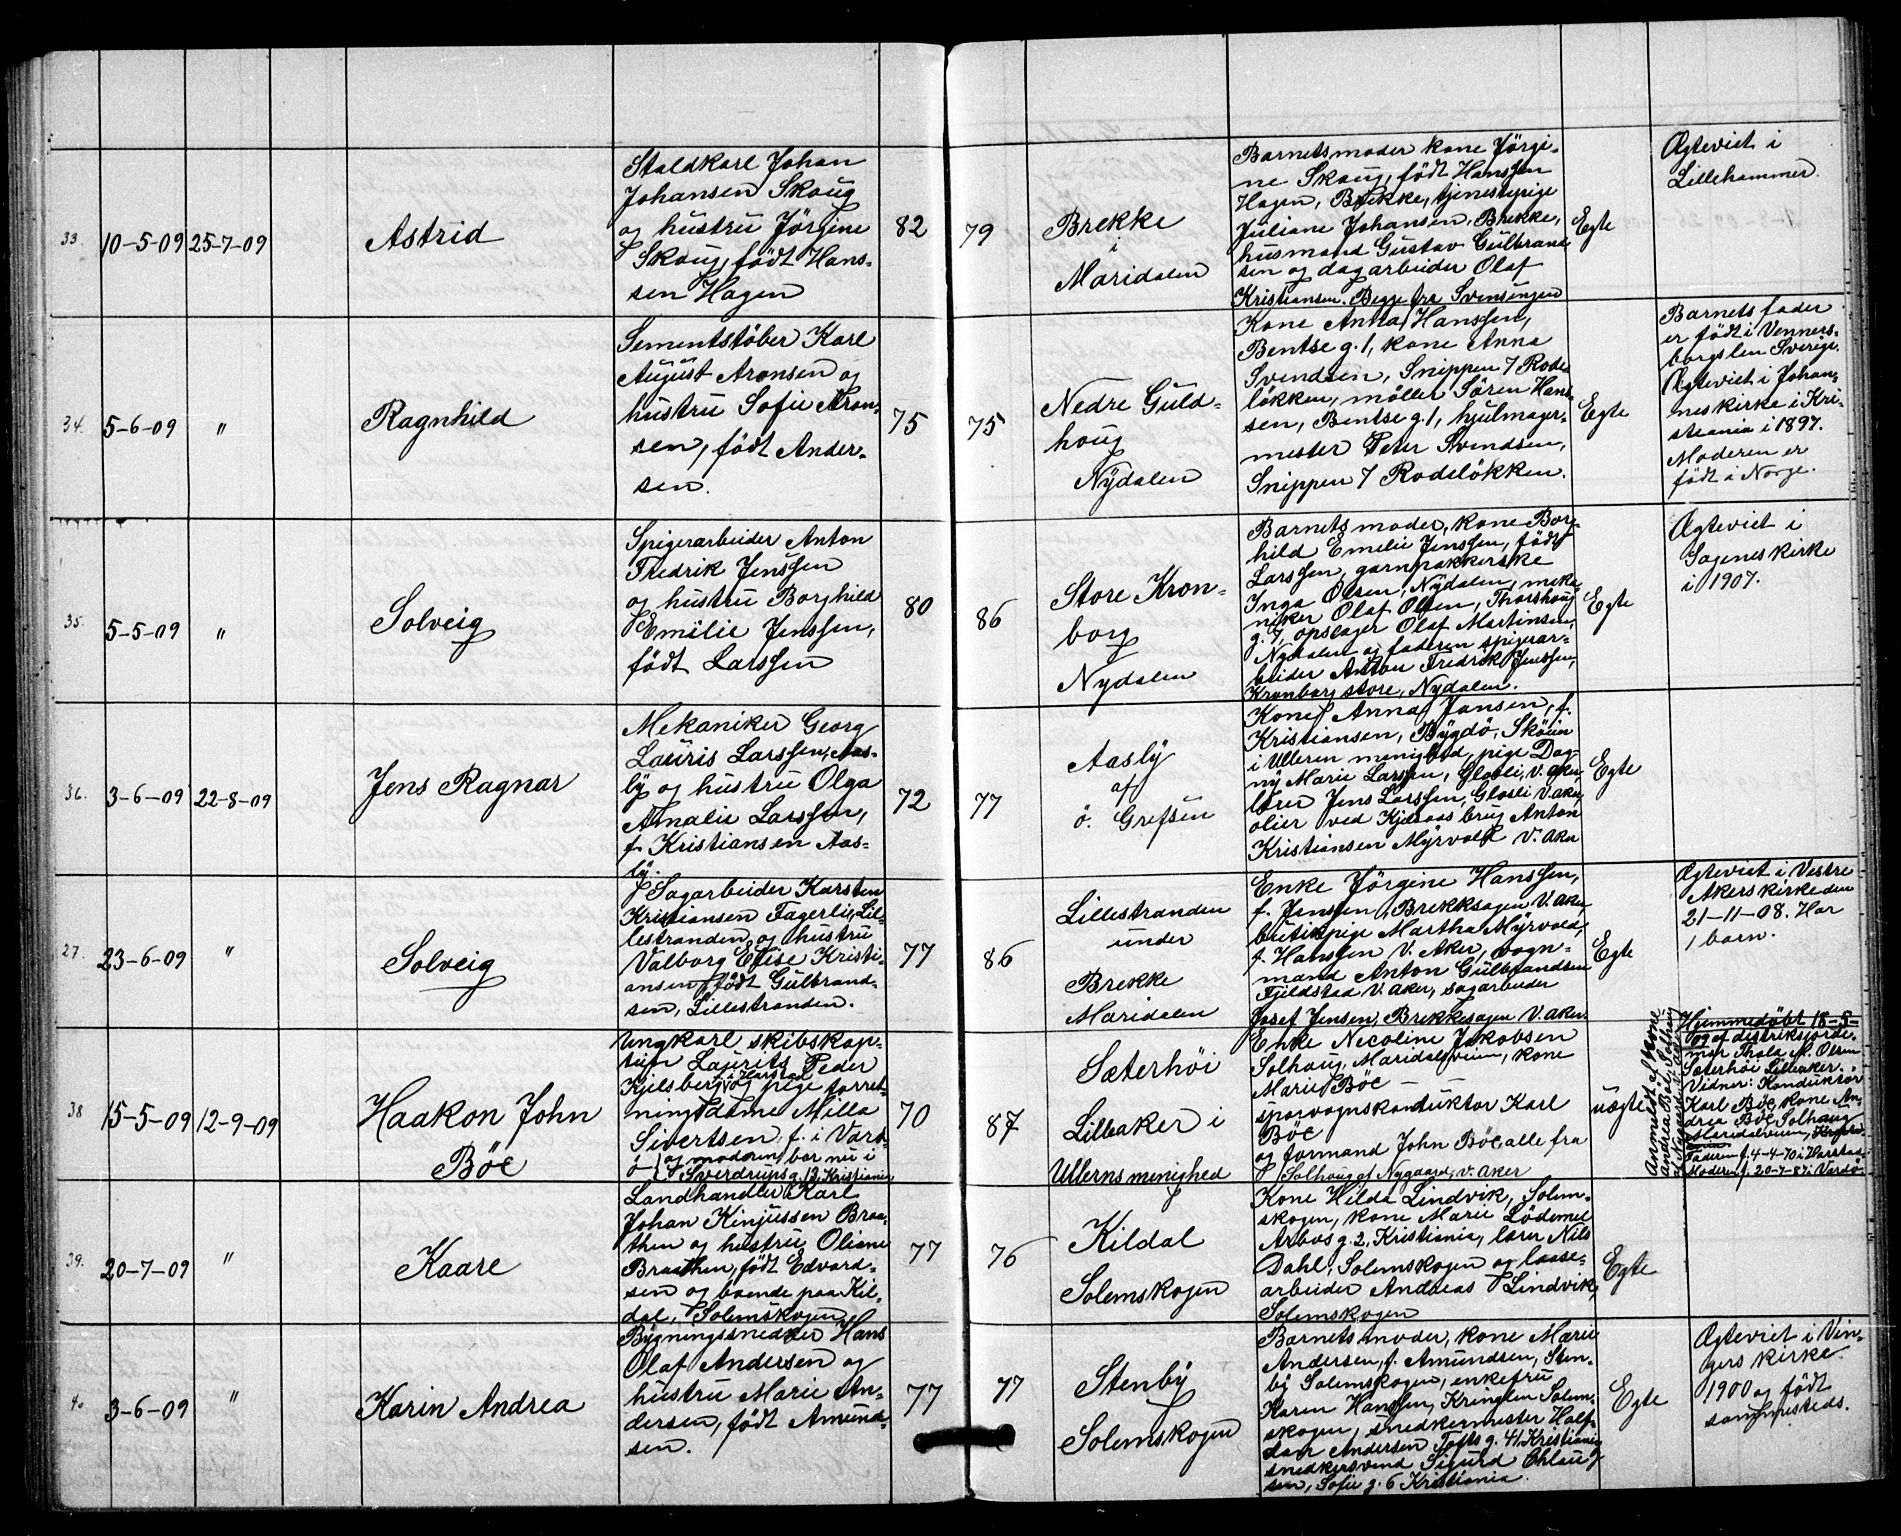 33.
10-5-09
25-7-09
Astrid
Staldkarl Johan
Johansen Skoug
og hustru Jörgine
Skoug, födt Hans-
sen Hagen
82
79
Brekke
i
Maridalen
Barnets moder kone Jörgi-
ne Skoug, födt Hanssen
Hagen, Brekke, tjenestepige
Juliane Johansen, Brekke,
husmand Gustav Gulbrand
sen og dagarbeider Olaf
Kristiansen. Begge fra Svensengen
Egte
Ægteviet i
Lillehammer.
34.
5-6-09
"
Ragnhild
Sementstöber Karl
August Aronsen og
hustru Sofie Aron-
sen, födt Ander-
sen.
75
75
Nedre Guld-
houg
Nydalen
Kone Anna Hanssen,
Bentse g. 1, kone Anna
Svendsen, Snippen 7 Rode-
lökken, möller Sören Hans-
sen, Bentse g. 1, hjulmager-
mester Peter Svendsen,
Snippen 7 Rodelökken.
Egte
Barnets fader
er födt i Venners-
borgs len Sverige.
Ægteviet i Johan-
nes kirke i Kri-
stiania i 1897.
Moderen er
födt i Norge.
35.
5-5-09
"
Solveig
Spigerarbeider Anton
Fredrik Jenssen
og hustru Borghild
Emilie Jenssen,
födt Larssen
80
86
Store Kron-
borg
Nydalen
Barnets moder, kone Borg-
hild Emelie Jenssen, födt
Larssen, garnpakkerske
Inga Olsen, Nydalen, meka-
niker Olaf Olsen, Thorshoug
g. 7, opslager Olaf Martinsen,
Nydalen og faderen spigerar-
beider Anton Fredrik Jenssen,
Kronborg store, Nydalen.
Egte
Ægteviet i
Sagenes kirke
i 1907.
36.
3-6-09
22-8-09
Jens Ragnar
Mekaniker Georg
Lauris Larssen, Aas-
ly og hustru Olga
Amalie Larssen,
f. Kristiansen Aas-
ly.
72
77
Aasly
af
ö. Grefsen
Kone Anna Jansen, f.
Kristiansen, Bygdö, Sköien
i Ulleren menighed, pige Dag-
ny Marie Larssen, Glosli, V. aker,
lærer Jens Larssen, Glosli V. aker,
olier ved Kjelsaas brug Anton
Kristiansen Myrvold V. Aker
Egte
27.
23-6-09
"
Solveig
Sagarbeider Karsten
Kristiansen Fagerli, Lil-
lestranden og hustru
Valborg Elise Kristi-
ansen, födt Gulbrand-
sen, Lillestranden.
77
86
Lillestranden
under
Brekke
Maridalen
Enke Jörgine Hanssen,
f. Jenssen, Brekksagen V. aker,
butikpige Martha Myrvold,
f. Hanssen V. Aker, vogn-
mand Anton Gulbrandsen
Fjeldstad V. aker, sagarbeider
Josef Jensen, Brekksagen V. aker.
Egte
Ægteviet i Vestre
Akers kirke den
21-11-08. Har
1 barn.
38
15-5-09
12-9-09
Haakon John
Böe
Ungkarl skibskap-
tein Laurits Peder
Kjelsberg i Harstad og pige forret-
ningsdame Milla
Sivertsen, f. i Vard-
ö og moderen bor nu i
Sverdrups g. 13, Kristiania
70
87
Sæterhöi
Lilleaker i
Ullerns menighed
Enke Nicoline Jakobsen
Solhaug, Maridalsveien, kone
Marie Böe — —
sporvognskonduktör Karl
Böe
og formand John Böe alle fra
Solhoug af Nygaard, V. aker
uægte
Anmeldt af kone
Andrea Böe, Solhoug
Hjemmedöbt 18-5-
09 af distriktsjorde-
mor Thala M. Olsen
Sæterhöi Lilleaker.
Vidner: Konduktör
Karl Böe, kone An-
drea Böe, Solhaug
Maridalsveien,
Faderen f. 4-4-70 i Harstad.
Moderen f. 20-7-87 i Vardö.
39.
20-7-09
"
Kaare
Landhandler Karl
Johan Kinjussen Braa-
then og hustru Oliane
Braathen, födt Edvard-
sen og boende paa Kil-
dal, Solemskogen
77
76
Kildal
Solemskogen
Kone Hilda Lindvik, Solem-
skogen, kone Marie Lödemel
Arbos g. 2, Kristiania, lærer Nils
Dahl, Solemskogen og laase-
arbeider Andreas Lindvik,
Solemskogen
Egte
40
3-6-09
"
Karin Andrea
Bygningssnedker Hans
Olaf Andersen og
hustru Marie An-
dersen, födt Amund-
sen.
77
77
Stenby
Solemskogen
Barnets moder, kone Marie
Andersen, f. Amundsen, Sten-
by Solemskogen, enkefru
Karen Hanssen, Kringlen Solem-
skogen, snedkermester Half-
dan Andersen Tofts g. 41, Kristiania
snedkersvend Sigurd Ohlaug-
sen, Sofie g. 6 Kristiania.
Egte
Ægteviet i Vin-
gers kirke
1900 og födt
sammesteds.